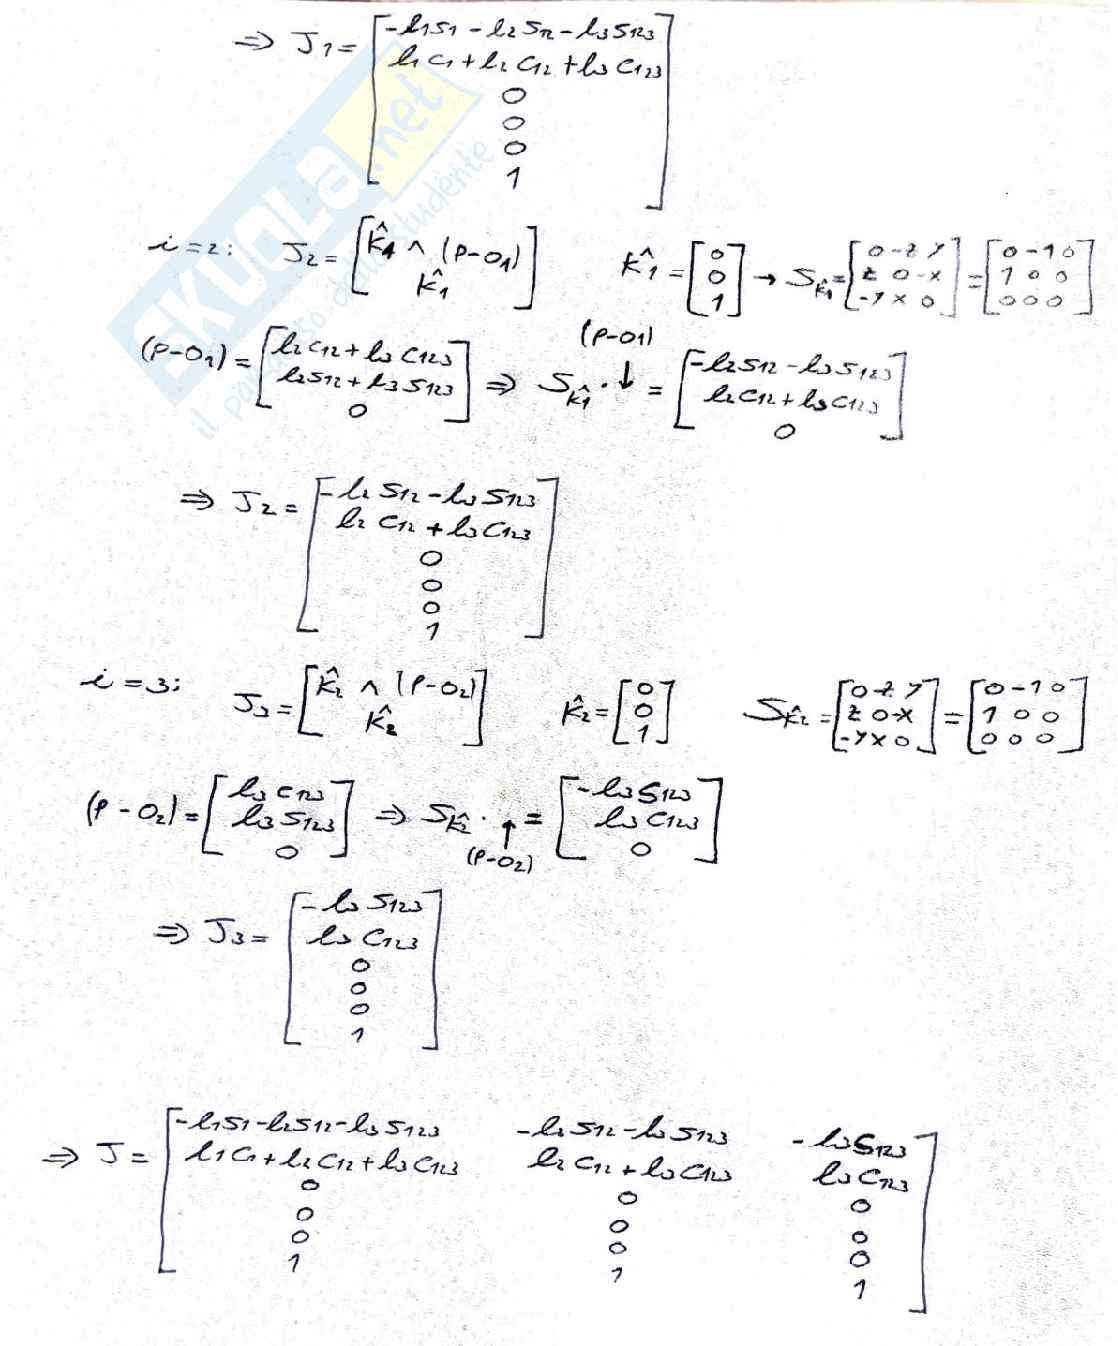 ⇒ J₁ = [ -l₁s₁ - l₂s₁₂ - l₃s₁₂₃
l₁c₁ + l₂c₁₂ + l₃c₁₂₃
0
0
0
1 ]
SKUOLA.net
il paradiso dello studente
i=2: J₂ = [ k̂₁ ∧ (P-O₁) ; k̂₁ ] k̂₁ = [ 0 ; 0 ; 1 ] → S_k̂₁ = [ 0 -z y ; z 0 -x ; -y x 0 ] = [ 0 -1 0 ; 1 0 0 ; 0 0 0 ]
(P-O₁) = [ l₂c₁₂ + l₃c₁₂₃ ; l₂s₁₂ + l₃s₁₂₃ ; 0 ] ⇒ S_k̂₁ · (P-O₁) ↓ = [ -l₂s₁₂ - l₃s₁₂₃ ; l₂c₁₂ + l₃c₁₂₃ ; 0 ]
⇒ J₂ = [ -l₂s₁₂ - l₃s₁₂₃
l₂c₁₂ + l₃c₁₂₃
0
0
0
1 ]
i=3: J₃ = [ k̂₂ ∧ (P-O₂) ; k̂₂ ] k̂₂ = [ 0 ; 0 ; 1 ] S_k̂₂ = [ 0 -z y ; z 0 -x ; -y x 0 ] = [ 0 -1 0 ; 1 0 0 ; 0 0 0 ]
(P-O₂) = [ l₃c₁₂₃ ; l₃s₁₂₃ ; 0 ] ⇒ S_k̂₂ · ↑ (P-O₂) = [ -l₃s₁₂₃ ; l₃c₁₂₃ ; 0 ]
⇒ J₃ = [ -l₃s₁₂₃
l₃c₁₂₃
0
0
0
1 ]
⇒ J = [ -l₁s₁ - l₂s₁₂ - l₃s₁₂₃ -l₂s₁₂ - l₃s₁₂₃ -l₃s₁₂₃
l₁c₁ + l₂c₁₂ + l₃c₁₂₃ l₂c₁₂ + l₃c₁₂₃ l₃c₁₂₃
0 0 0
0 0 0
0 0 0
1 1 1 ]